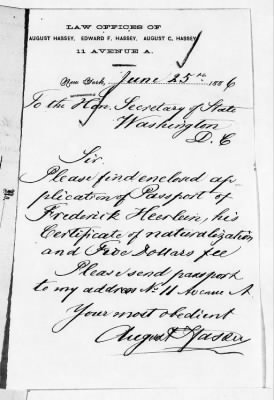 LAW OFFICES OF
AUGUST HASSEY, EDWARD F. HASSEY, AUGUST C. HASSEY,
11 AVENUE A.
New York, June 25th 1886
To the Hon. Secretary of State
Washington
D. C
Sir.
Please find enclosed ap-
plication of Passport of
Frederick Heerlein, his
Certificate of naturalization
and Five Dollars fee
Please send passport
to my address No 11 Avenue A
Your most obedient
August Hassey